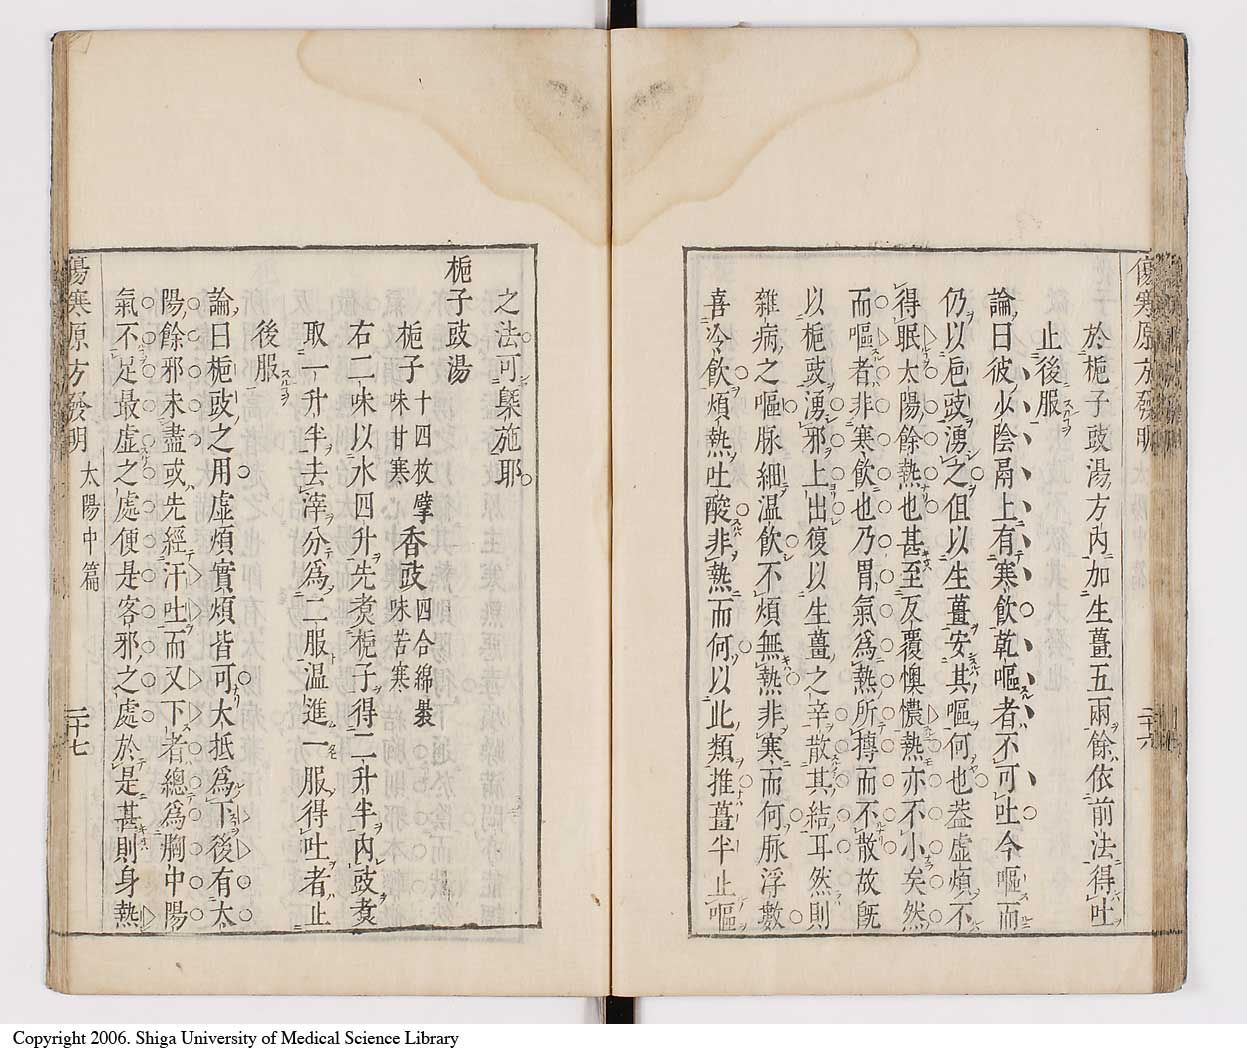 傷寒原方發明
二十六
於梔子豉湯方內加生薑五兩餘依前法得吐
止後服
論曰彼少陰鬲上有寒飲乾嘔者不可吐今嘔而
仍以梔豉湧之但以生薑安其嘔何也葢虛煩不
得眠太陽餘熱也甚至反覆懊憹熱亦不小矣然
而嘔者非寒飲也乃胃氣爲熱所搏而不散故旣
以梔豉湧邪上出復以生薑之辛散其結耳然則
雜病之嘔脉細溫飲不煩無熱非寒而何脉浮數
喜冷飲煩熱吐酸非熱而何以此類推薑半止嘔
之法可槩施耶
梔子豉湯
梔子十四枚擘味甘寒 香豉四合綿裂味苦寒
右二味以水四升先煮梔子得二升半內豉煮
取一升半去滓分爲二服溫進一服得吐者止
後服
論曰梔豉之用虛煩實煩皆可太抵爲下後有太
陽餘邪未盡或先經汗吐而又下者總爲胸中陽
氣不足最虛之處便是客邪之處於是甚則身熱
傷寒原方發明 太陽中篇
二十七
Copyright 2006. Shiga University of Medical Science Library